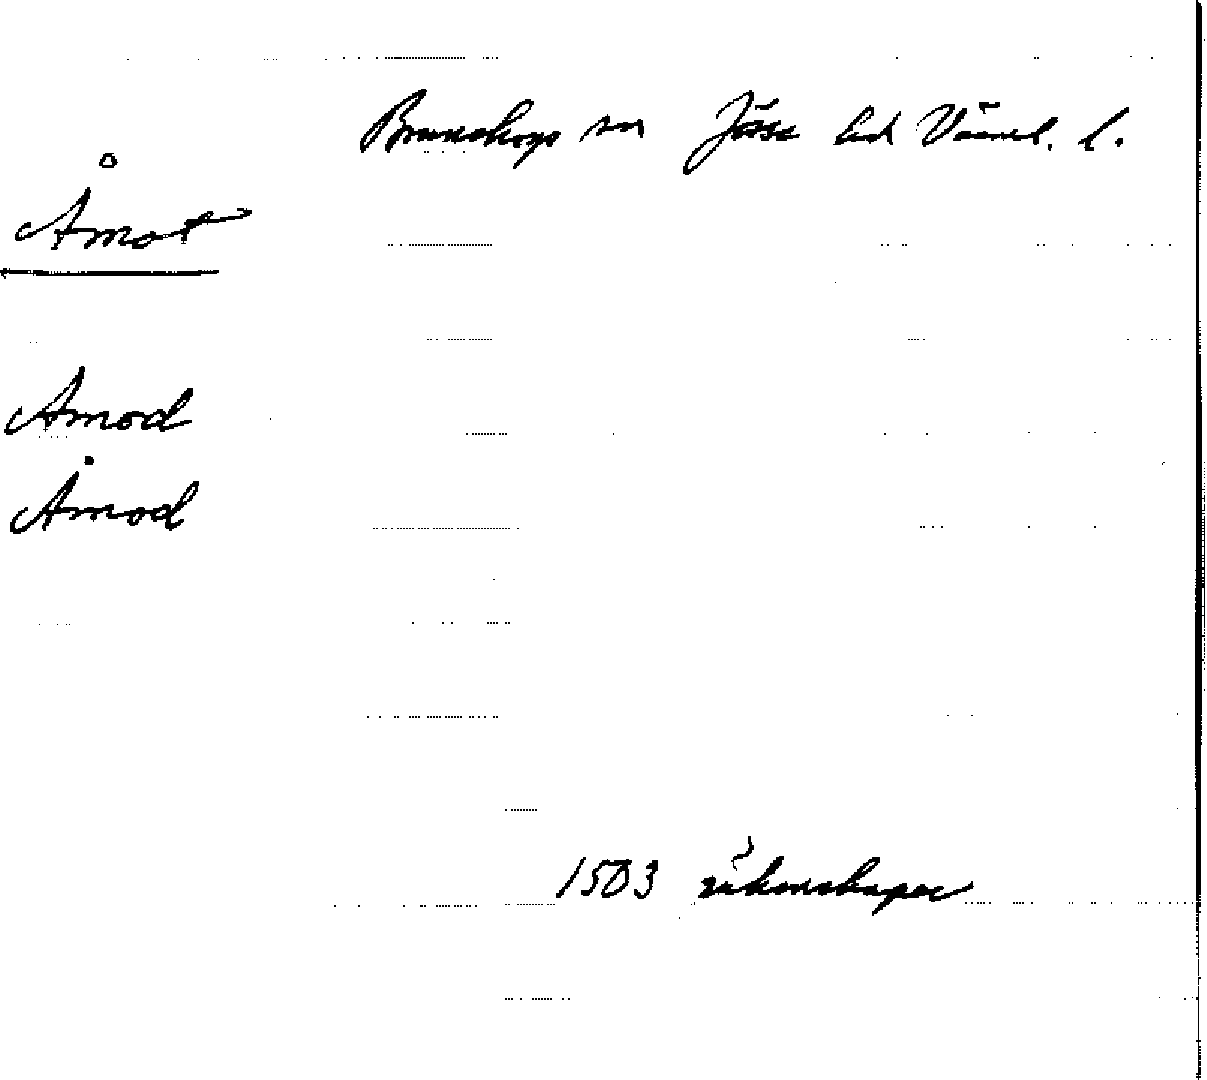 Brunskogs sn Jösse hd Värml. l.
Åmot
Åmod
Åmod
1503 räkenskaper